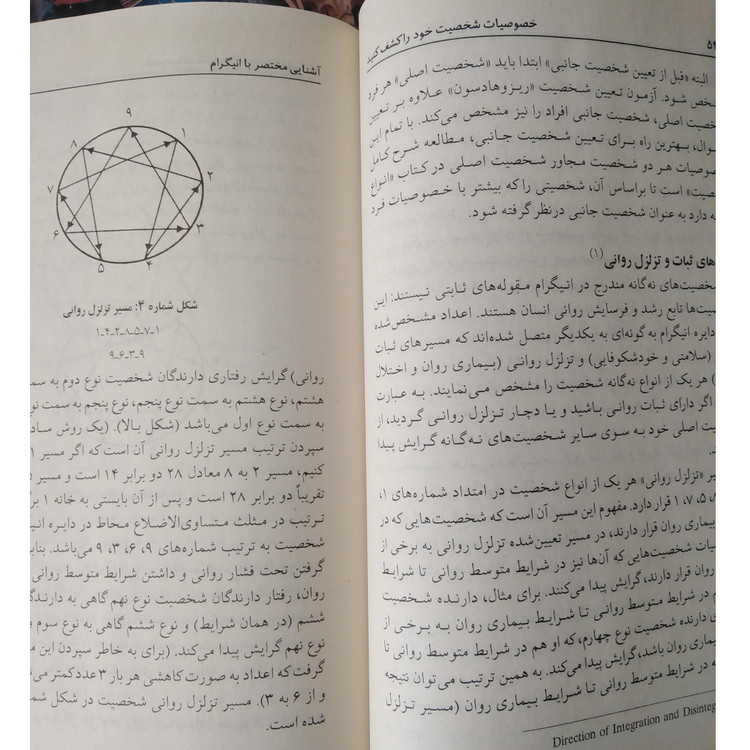 خصوصیات شخصیت خود را کشف کنید
البته «قبل از تعیین شخصیت جانبی» ابتدا باید «شخصیت اصلی» هر فرد
شود. آزمون تعیین شخصیت «ریزوهادسون» علاوه بر تعیین
اصلی، شخصیت جانبی افراد را نیز مشخص می‌کند. با تمام این
بهترین راه برای تعیین شخصیت جانبی، مطالعه شرح کامل
هر دو شخصیت مجاور شخصیت اصلی در کتاب «انواع
است تا براساس آن، شخصیتی را که بیشتر با خصوصیات فرد
دارد به عنوان شخصیت جانبی درنظر گرفته شود.
های ثبات و تزلزل روانی(۱)
نه‌گانه مندرج در انیگرام مقوله‌های ثابتی نیستند: این
تابع رشد و فرسایش روانی انسان هستند. اعداد مشخص‌شده
دایره انیگرام به گونه‌ای به یکدیگر متصل شده‌اند که مسیرهای ثبات
(سلامتی و خودشکوفایی) و تزلزل روانی (بیماری روان و اختلال
) هر یک از انواع نه‌گانه شخصیت را مشخص می‌نمایند. به عبارت
اگر دارای ثبات روانی باشید و یا دچار تزلزل روانی گردید، از
اصلی خود به سوی سایر شخصیت‌های نه‌گانه گرایش پیدا
«تزلزل روانی» هر یک از انواع شخصیت در امتداد شماره‌های ۱،
۸، ۵، ۷، ۱ قرار دارد. مفهوم این مسیر آن است که شخصیت‌هایی که در
بیماری روان قرار دارند، در مسیر تعیین‌شده تزلزل روانی به برخی از
شخصیت‌هایی که آن‌ها نیز در شرایط متوسط روانی تا شرایط
روان قرار دارند، گرایش پیدا می‌کنند. برای مثال، دارنده شخصیت
در شرایط متوسط روانی تا شرایط بیماری روان به برخی از
دارنده شخصیت نوع چهارم، که او هم در شرایط متوسط روانی تا
بیماری روان باشد، گرایش پیدا می‌کند. به همین ترتیب می‌توان نتیجه
در شرایط متوسط روانی تا شرایط بیماری روان (مسیر تزلزل
Direction of Integration and
آشنایی مختصر با انیگرام
۹
۸ ۱
۷ ۲
۶ ۳
۵ ۴
شکل شماره ۴: مسیر تزلزل روانی
۱-۴-۲-۸-۵-۷-۱
۹-۶-۳-۹
روانی) گرایش رفتاری دارندگان شخصیت نوع دوم به
هشتم، نوع هشتم به سمت نوع پنجم، نوع پنجم به سمت
به سمت نوع اول می‌باشد (شکل بالا). (یک روش
سپردن ترتیب مسیر تزلزل روانی آن است که اگر مسیر
کنیم، مسیر ۲ به ۸ معادل ۲۸ دو برابر ۱۴ است و مسیر
تقریباً دو برابر ۲۸ است و پس از آن بایستی به خانه ۱
ترتیب در مثلث متساوی‌الاضلاع محاط در دایره
شخصیت به ترتیب شماره‌های ۹، ۶، ۳، ۹ می‌باشد.
گرفتن تحت فشار روانی و داشتن شرایط متوسط
روان، رفتار دارندگان شخصیت نوع نهم گاهی به
ششم (در همان شرایط) و نوع ششم گاهی به نوع سوم و
نوع نهم گرایش پیدا می‌کند. (برای به خاطر سپردن این
گرفت که اعداد به صورت کاهشی هر بار ۳ عدد کمتر
و از ۶ به ۳). مسیر تزلزل روانی شخصیت در شکل
شده است.